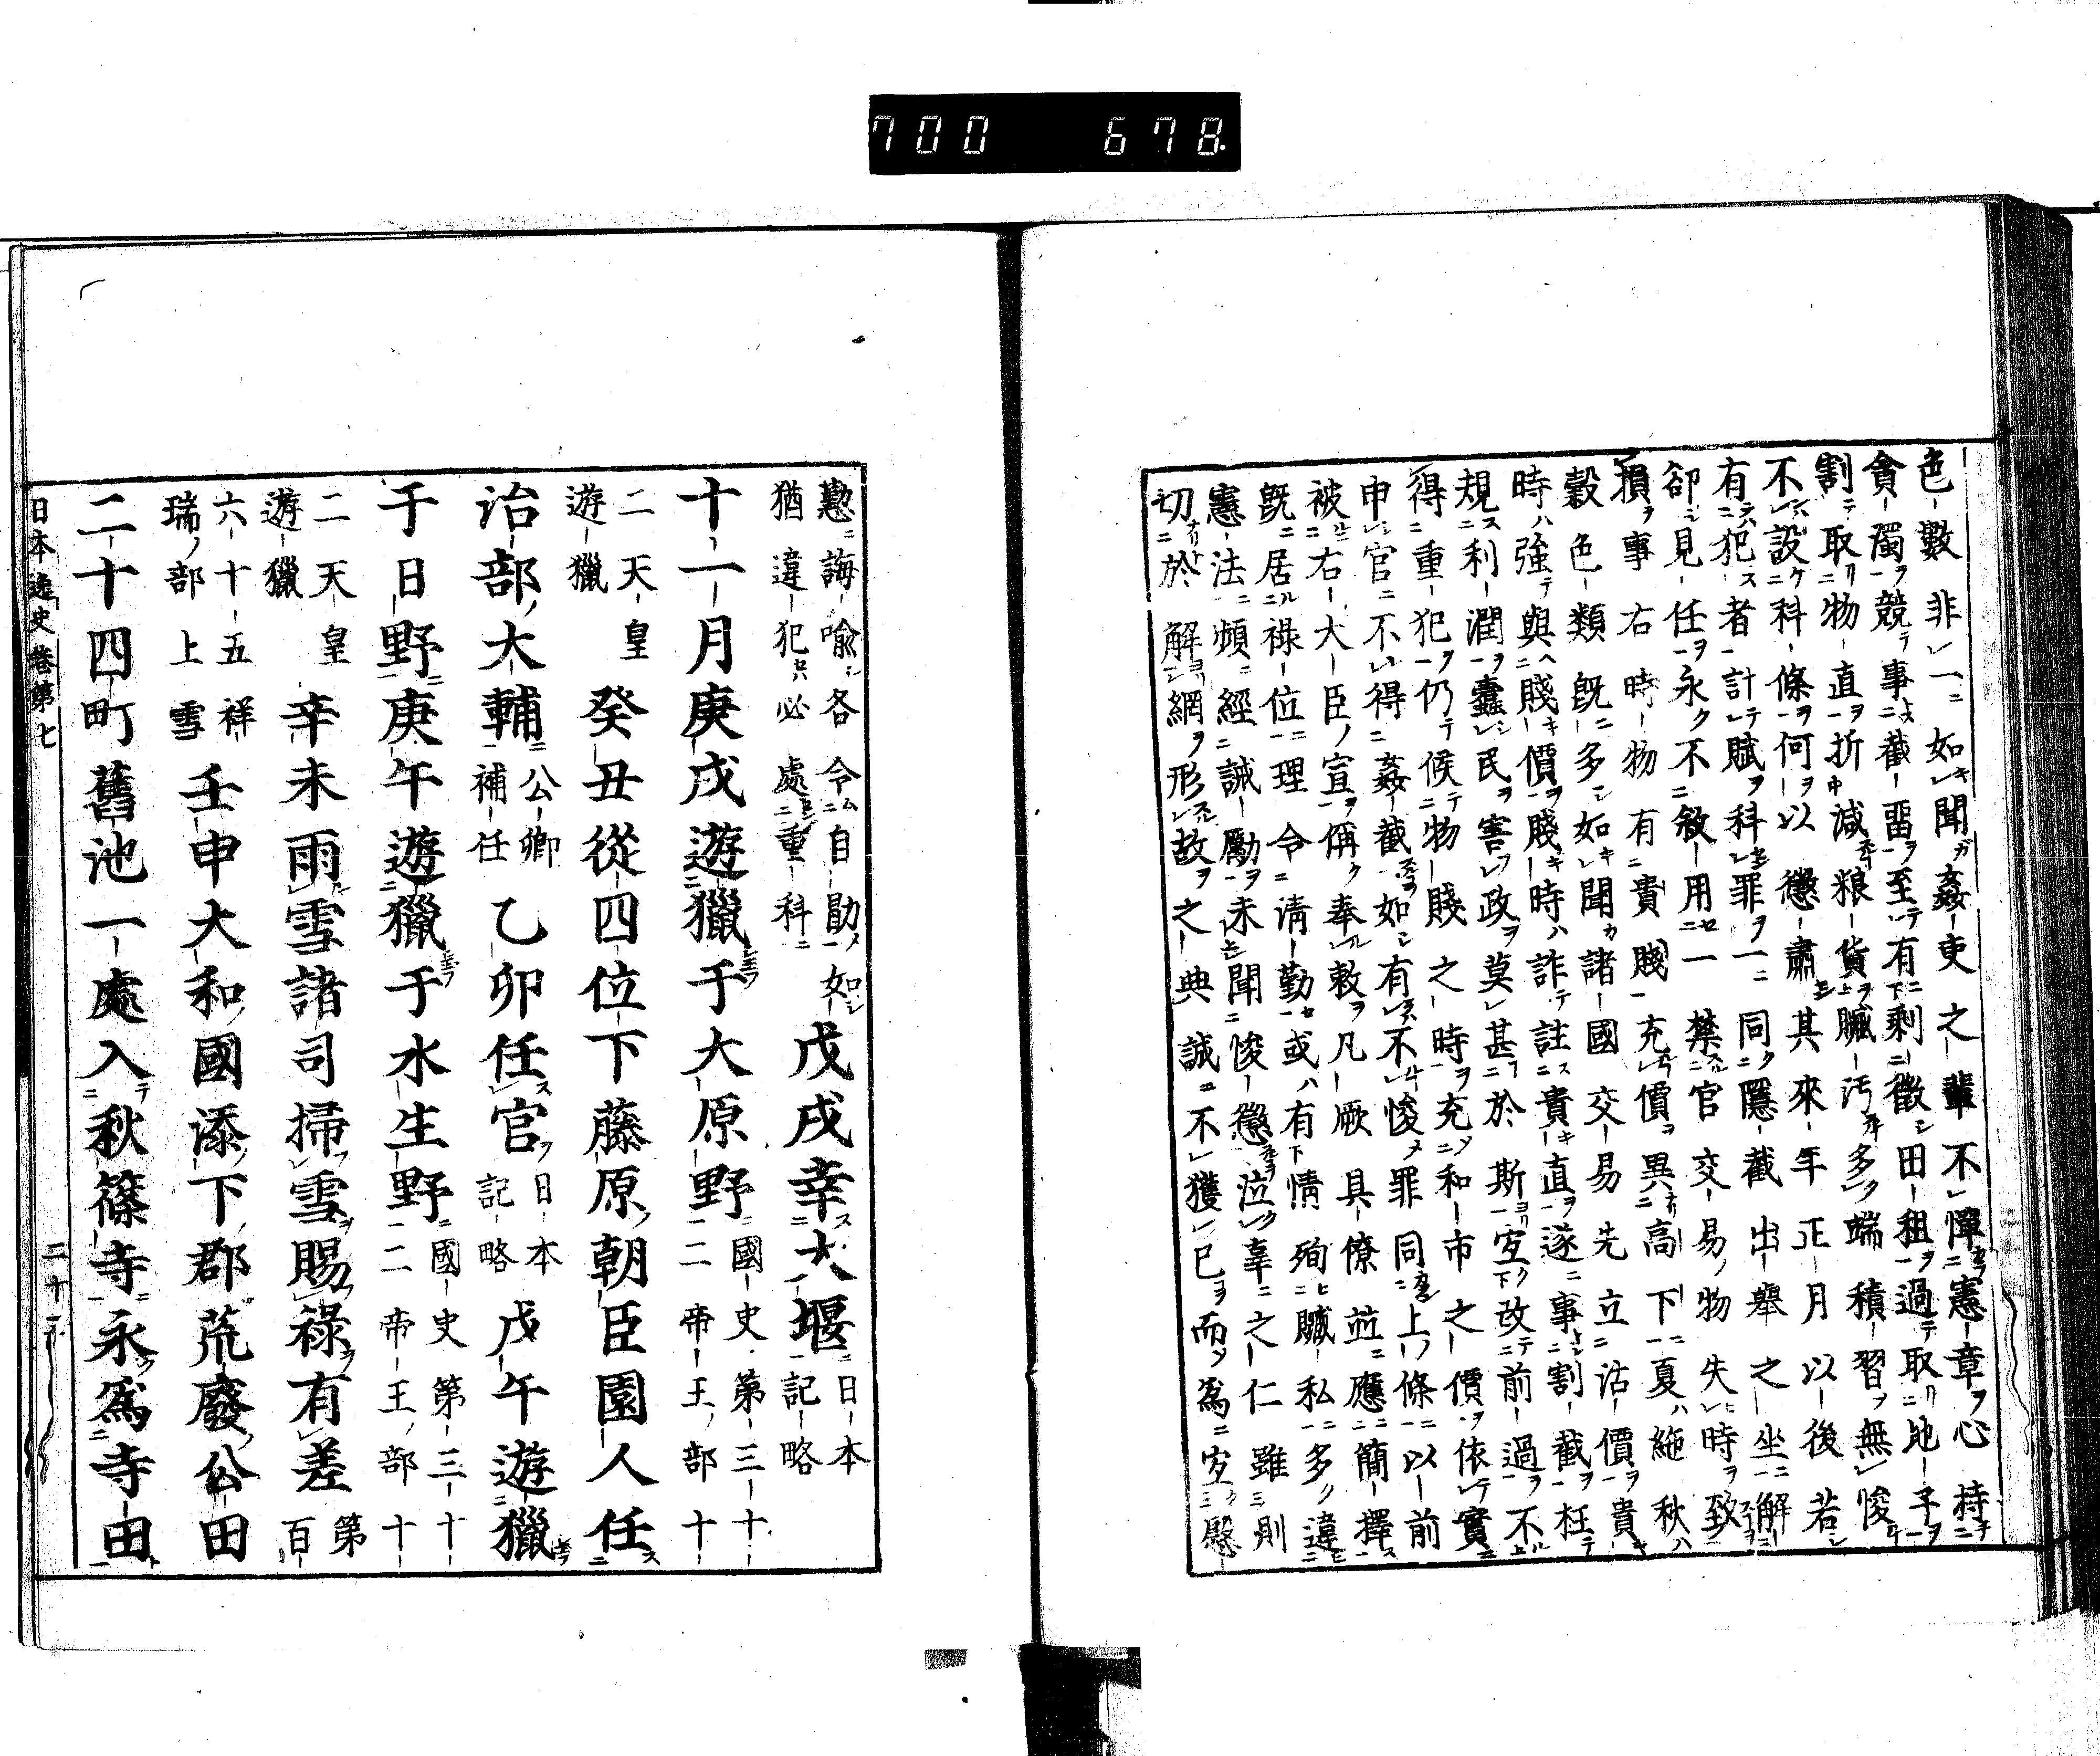 700 678
色數非一如聞姦吏之輩不憚憲章心持
貪濁競事截留至有剩徵田租過取地子
割取物直折減粮貨贓汚多端積習無悛
不設科條何以懲肅其來年正月以後若
有犯者計賦科罪一同隱截出擧之坐解
卻見任永不敘用一禁官交易物失時致
損事右時物有貴賤充價異高下夏絁秋
穀色類旣多如聞諸國交易先立沽價貴
時強與賤價賤時詐註貴直遂事割截枉
規利潤蠹民害政莫甚於斯宜改前過不
得重犯仍候物賤之時充和市之價依實
申官不得姦截如有不悛罪同上條以前
被右大臣宣偁奉敕凡厥具僚並應簡擇
旣居祿位理令淸勤或有情殉贓私多違
憲法頻經誡勵未聞悛懲泣辜之仁雖則
切於解網形故之典誠不獲已而爲宜慇
懃誨喩各令自勖如
猶違犯必處重科
戊戌幸大堰
日本
記略
十一月庚戌遊獵于大原野
國史第三十
二帝王部十
二天皇
遊獵
癸丑從四位下藤原朝臣園人任
治部大輔
公卿
補任
乙卯任官
日本
記略
戊午遊獵
于日野庚午遊獵于水生野
國史第三十
二帝王部十
二天皇
遊獵
辛未雨雪諸司掃雪賜祿有差
第
百
六十五祥
瑞部上雪
壬申大和國添下郡荒廢公田
二十四町舊池一處入秋篠寺永爲寺田
日本逸史卷第七 二十二